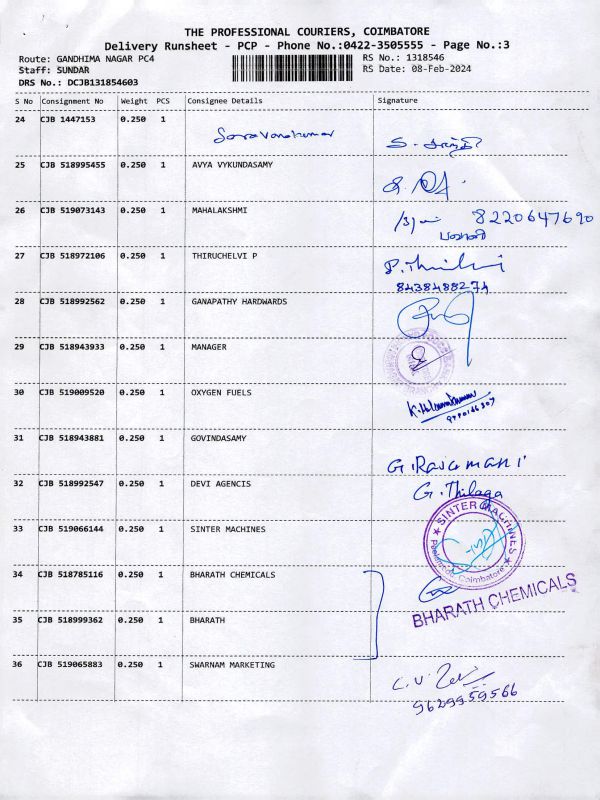 THE PROFESSIONAL COURIERS, COIMBATORE
Delivery Runsheet - PCP - Phone No.:0422-3505555 - Page No.:3
Route: GANDHIMA NAGAR PC4 RS No.: 1318546
Staff: SUNDAR RS Date: 08-Feb-2024
DRS No.: DCJB131854603
S No Consignment No Weight PCS Consignee Details Signature
24 CJB 1447153 0.250 1
Saravanakumar
25 CJB 518995455 0.250 1 AVYA VYKUNDASAMY
26 CJB 519073143 0.250 1 MAHALAKSHMI
8220647690
27 CJB 518972106 0.250 1 THIRUCHELVI P
8438488274
28 CJB 518992562 0.250 1 GANAPATHY HARDWARDS
29 CJB 518943933 0.250 1 MANAGER
30 CJB 519009520 0.250 1 OXYGEN FUELS
31 CJB 518943881 0.250 1 GOVINDASAMY
G. Rajamani
32 CJB 518992547 0.250 1 DEVI AGENCIS
G. Thilaga
33 CJB 519066144 0.250 1 SINTER MACHINES
SINTER MACHINES
Coimbatore
34 CJB 518785116 0.250 1 BHARATH CHEMICALS
BHARATH CHEMICALS
35 CJB 518999362 0.250 1 BHARATH
36 CJB 519065883 0.250 1 SWARNAM MARKETING
9629959566